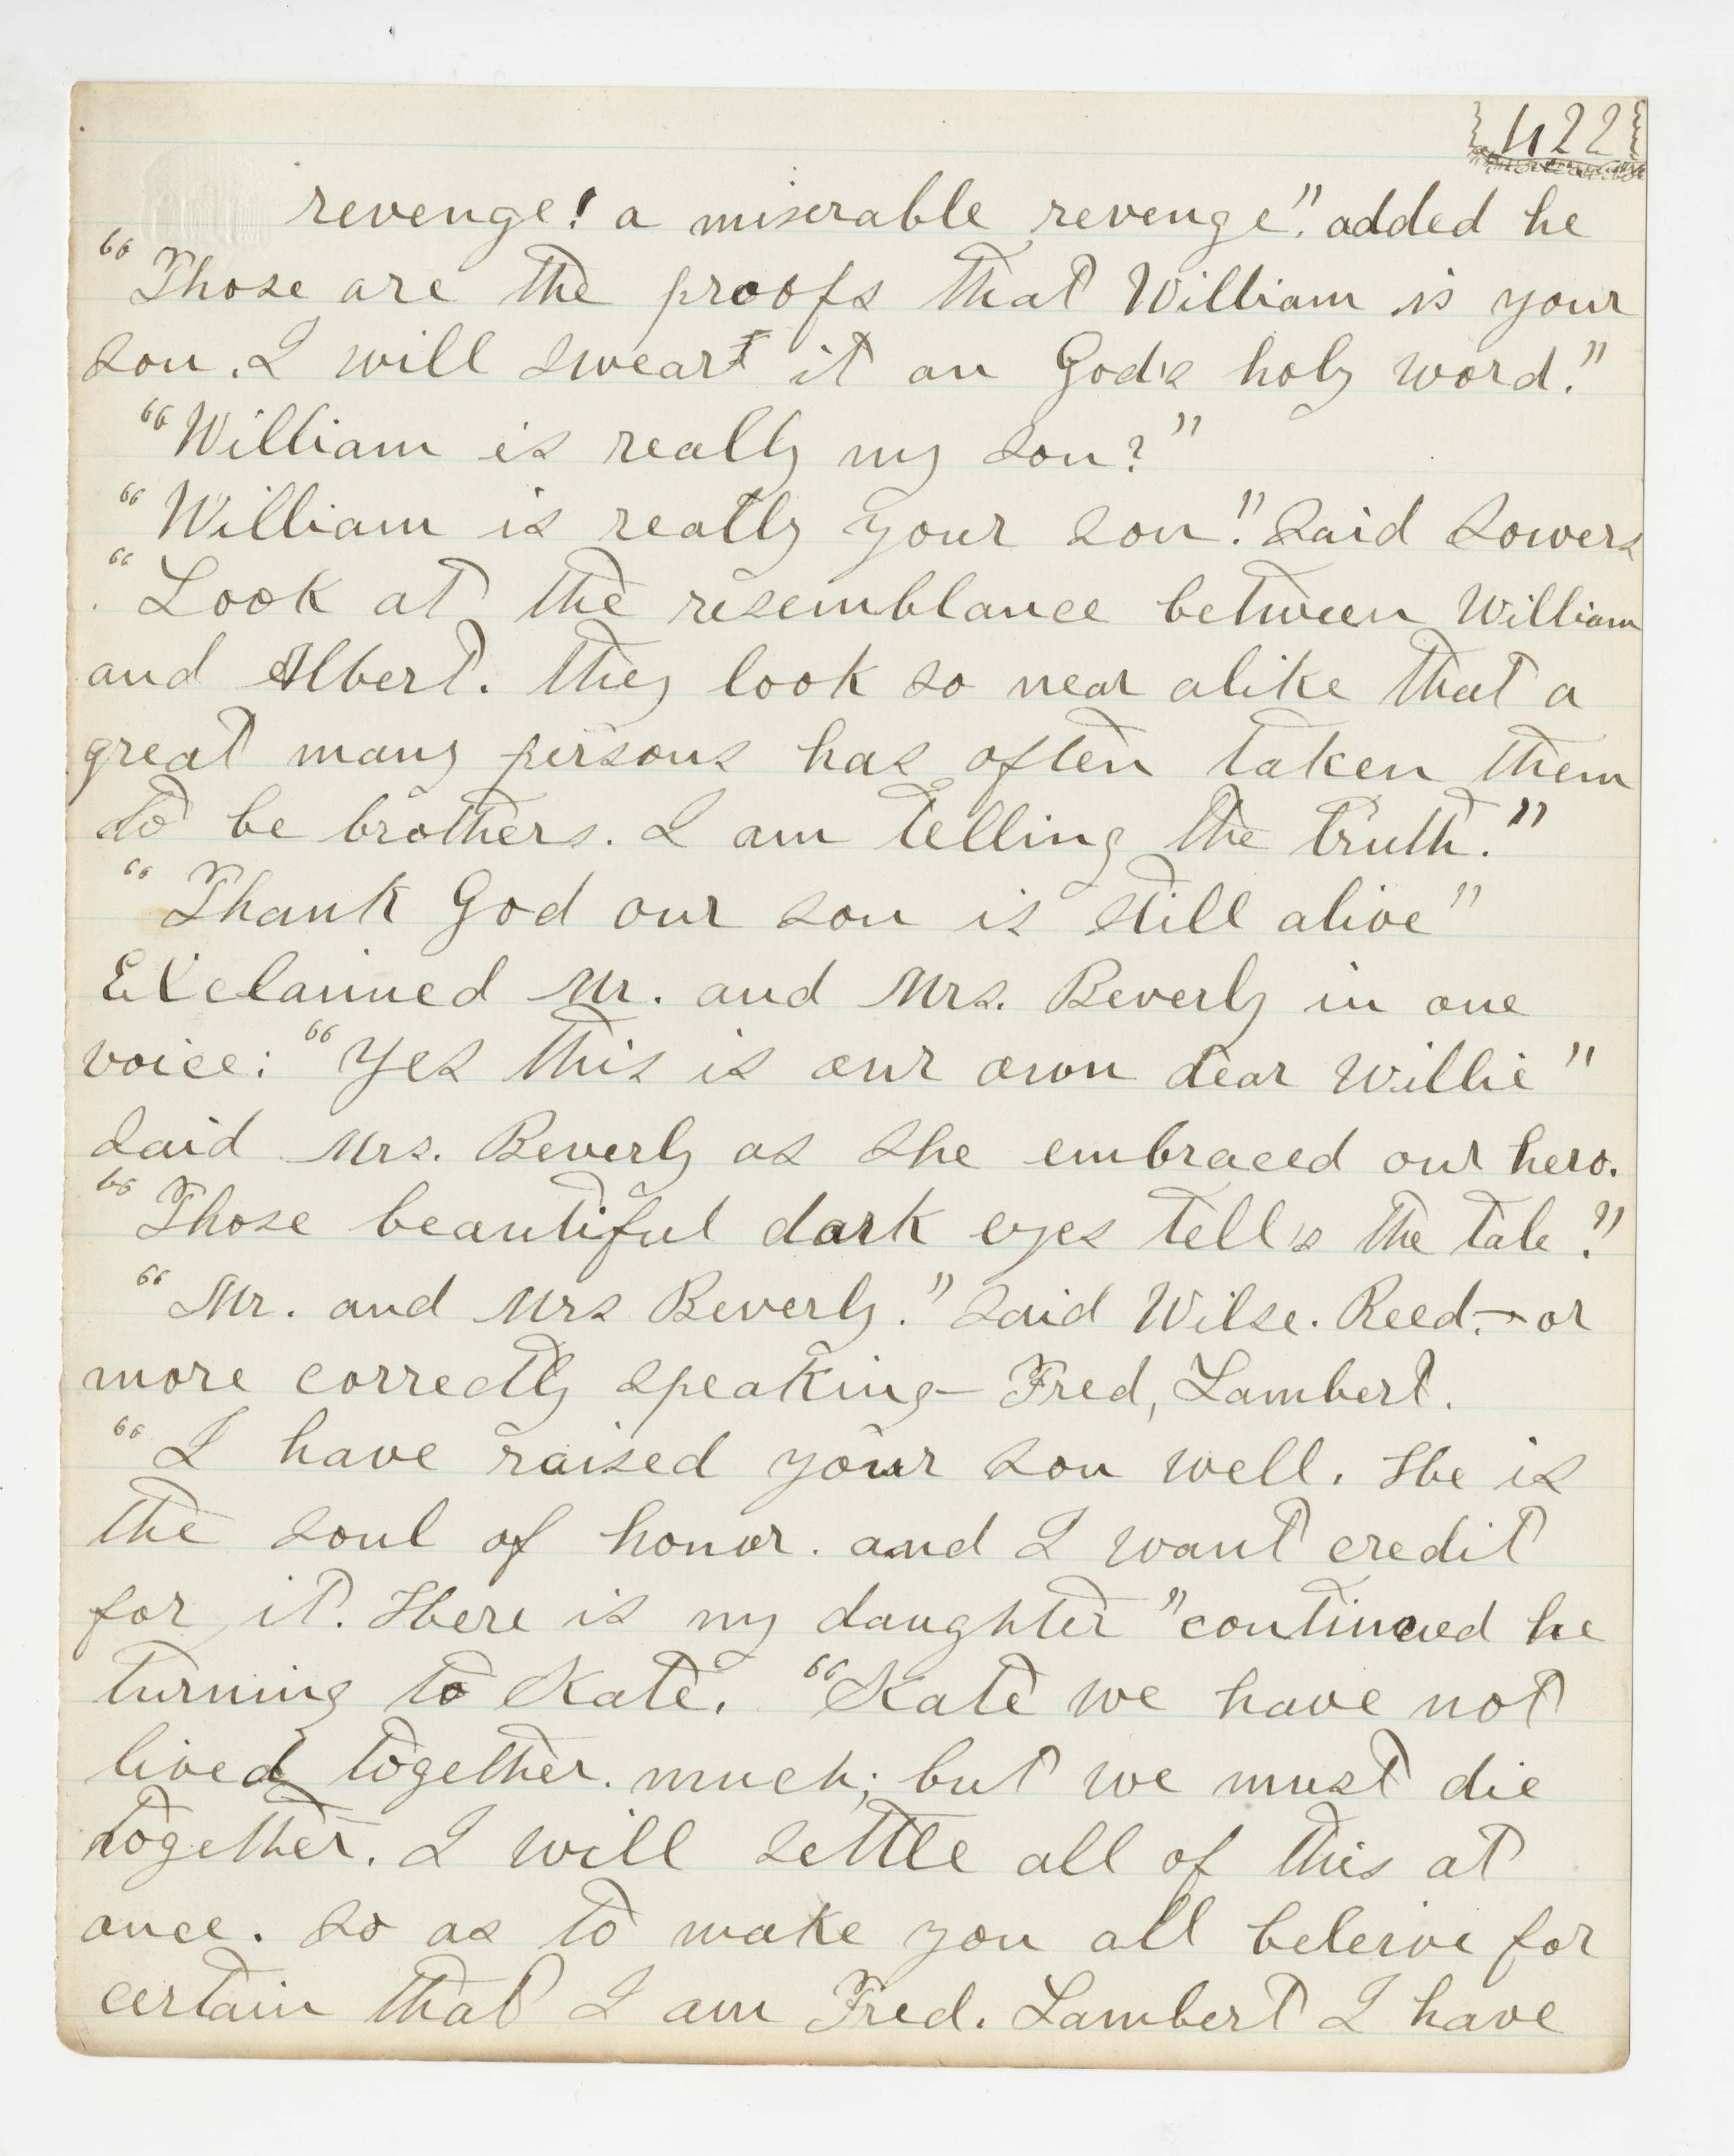 422
revenge! a miserable revenge". added he
"Those are the proofs that William is your
son. I will swear it on God's holy word."
"William is really my son?"
"William is really your son!" Said Sowers
"Look at the resemblance between William
and Albert. they look so near alike that a
great many persons has often taken them
to be brothers. I am telling the truth."
"Thank God our son is still alive"
Exclaimed Mr. and Mrs. Beverly in one
voice: "Yes this is our own dear Willie"
Said Mrs. Beverly as she embraced our hero.
"Those beautiful dark eyes tells the tale."
"Mr. and Mrs Beverly." Said Wilse. Reed.- or
more correctly speaking- Fred, Lambert.
"I have raised your son well. He is
the soul of honor. and I want credit
for it. Here is my daughter "continued he
turning to Kate. "Kate we have not
lived together. much; but we must die
together. I will settle all of this at
once. So as to make you all beleive for
certain that I am Fred. Lambert I have